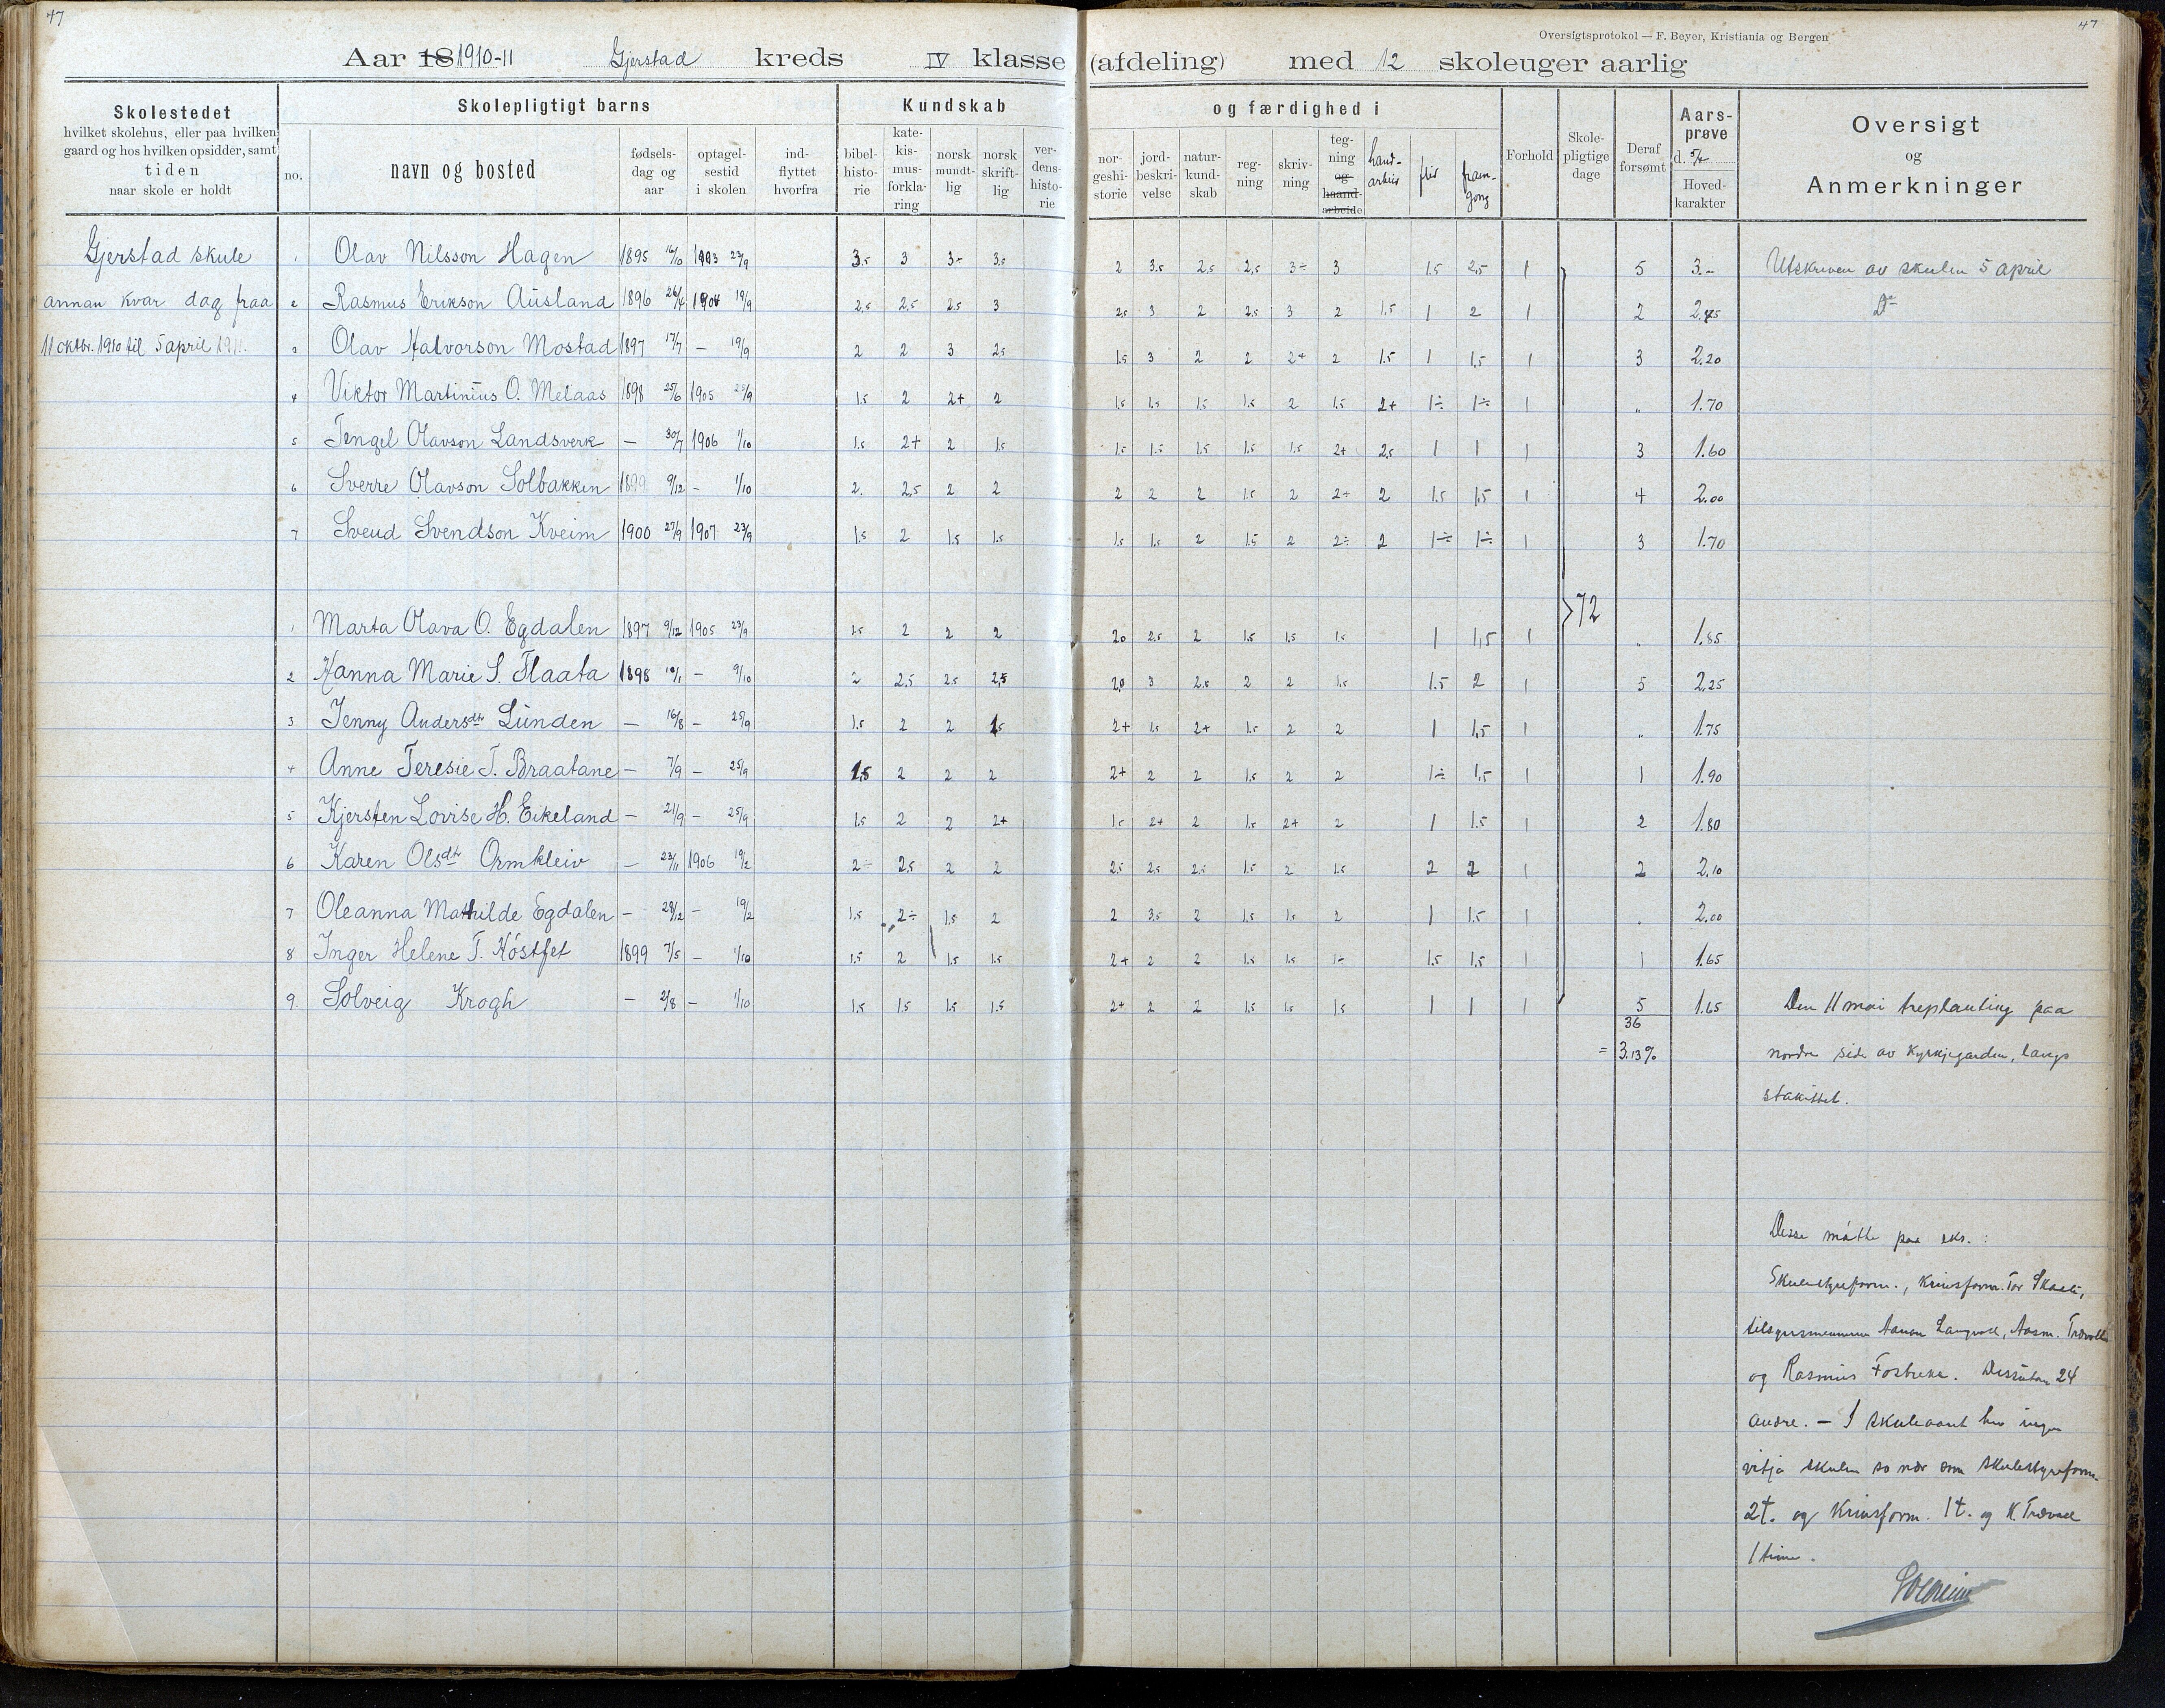 47
47
Oversigtsprotokol — F. Beyer, Kristiania og Bergen
Aar 18 1910-11 Gjerstad kreds IV klasse (afdeling) med 12 skoleuger aarlig
Skolestedet hvilket skolehus, eller paa hvilken gaard og hos hvilken opsidder, samt tiden naar skole er holdt
Skolepligtigt barns
no. navn og bosted fødselsdag og aar optagelsestid i skolen indflyttet hvorfra
Kundskab og færdighed i
bibelhistorie katekismusforklaring norsk mundtlig norsk skriftlig verdenshistorie norgeshistorie jordbeskrivelse naturkundskab regning skrivning tegning og haandarbeide handarbeid flid framgong
Forhold Skolepligtige dage Deraf forsømt Aarsprøve d. 5/4 Hovedkarakter
Oversigt og Anmerkninger
Gjerstad skule 1 Olav Nilsson Hagen 1895 16/10 1903 23/9 3.5 3 3- 3.5 2 3.5 2.5 2.5 3÷ 3 1.5 2.5 1 5 3.- Utskriven av skulen 5 april
annan kvar dag fraa 2 Rasmus Erikson Ausland 1896 26/4 1904 19/9 2.5 2.5 2.5 3 2.5 3 2 2.5 3 2 1.5 1 2 1 2 2.45 Do
11 oktbr. 1910 til 5 april 1911. 3 Olav Halvorson Mostad 1897 17/7 — 19/9 2 2 3 2.5 1.5 3 2 2 2+ 2 1.5 1 1.5 1 3 2.20
4 Viktor Martinius O. Melaas 1898 25/6 1905 25/9 1.5 2 2+ 2 1.5 1.5 1.5 1.5 2 1.5 2+ 1÷ 1÷ 1 „ 1.70
5 Tengel Olavson Landsverk — 30/7 1906 1/10 1.5 2+ 2 1.5 1.5 1.5 1.5 1.5 1.5 2+ 2.5 1 1 1 3 1.60
6 Sverre Olavson Solbakken 1899 9/12 — 1/10 2. 2.5 2 2 2 2 2 1.5 2 2÷ 2 1.5 1.5 1 4 2.00
7 Svend Svendson Kveim 1900 27/9 1907 23/9 1.5 2 1.5 1.5 1.5 1.5 2 1.5 2 2÷ 2 1÷ 1÷ 1 3 1.70
72
1 Marta Olava O. Egdalen 1897 9/12 1905 23/9 1.5 2 2 2 2.0 2.5 2 1.5 1.5 1.5 1 1.5 1 „ 1.85
2 Hanna Marie S. Flaata 1898 10/1 — 9/10 2 2.5 2.5 2.5 2.0 3 2.5 2 2 1.5 1.5 2 1 5 2.25
3 Jenny Andersdtr Lunden — 16/8 — 25/9 1.5 2 2 1.5 2+ 1.5 2+ 1.5 2 2 1 1.5 1 „ 1.75
4 Anne Teresie T. Braatane — 7/9 — 25/9 1.5 2 2 2 2+ 2 2 1.5 2 2 1÷ 1.5 1 1 1.90
5 Kjersten Lovise H. Eikeland — 21/9 — 25/9 1.5 2 2 2+ 1.5 2+ 2 1.5 2+ 2 1 1.5 1 2 1.80
6 Karen Olsdtr Ormkleiv — 23/11 1906 19/2 2÷ 2.5 2 2 2.5 2.5 2.5 1.5 2 1.5 2 2 1 2 2.10
7 Oleanna Mathilde Egdalen — 28/12 — 19/2 1.5 2÷ 1.5 2 2 3.5 2 1.5 1.5 2 1 1.5 1 „ 2.00
8 Inger Helene T. Kóstfet 1899 7/5 — 1/10 1.5 2 1.5 1.5 2+ 2 2 1.5 1.5 1÷ 1.5 1.5 1 1 1.65
9. Solveig Krogh — 2/8 — 1/10 1.5 1.5 1.5 1.5 2+ 2 2 1.5 1.5 1.5 1 1 1 5 1.65 Den 11 mai treplanting paa
36
= 3.13% nordre side av kyrkjegarden, langs
stakittet.
Desse møtte paa eks. :
Skulestyreform., Krinsform. Tor
og Rasmus Fosbrekk. Dessutan 24
andre. — I skuleaaret hev ingen
vitja skulen so nær som skulestyreform.
2t. og Krinsform. 1t. og K.
1 time.